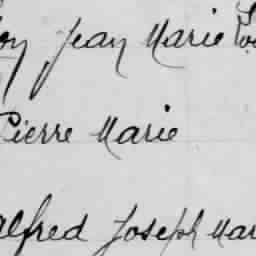 oy Jean Marie
Pierre Marie
Alfred Joseph Mar